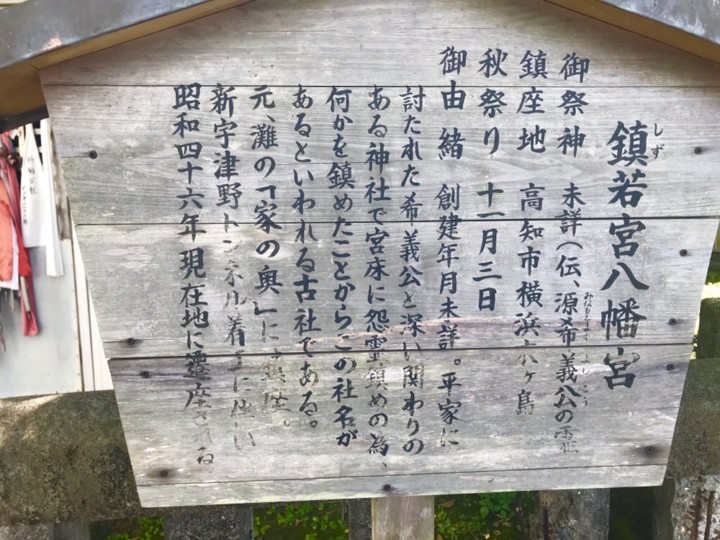 鎮若宮八幡宮
しず
御祭神 未詳(伝、源希義公の霊
みなもと
鎮座地 高知市横浜 ヶ島
秋祭り 十一月三日
御由緒 創建年月未詳。平家に
討たれた希義公と深い関わりの
ある神社で宮床に怨霊鎮めの為、
何かを鎮めたことからこの社名が
あるといわれる古社である。
元、灘の「家の奥」に 座。
新宇津野トンネル着工に伴い
昭和四十六年現在地に 座される